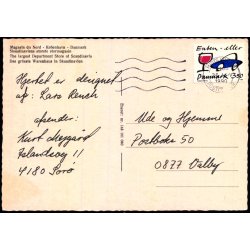 Magasin du Nord - København - Danmark
Skandinaviens største stormagasin
The largest Department Store of Scandinavia
Das grösste Warenhaus in Skandinavien
Enten - eller
Danmark 350
Hjertel er designet
af: Lars Rench
afsender:
Kurt
Islandsvej 11
4180 Sorø
Ude og Hjemme
Postboks 50
0877 Valby